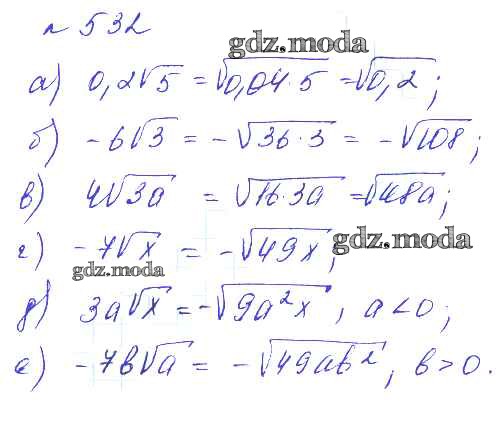 № 532
gdz.moda
а) 0,2√5 = √0,04·5 = √0,2;
б) -6√3 = -√36·3 = -√108;
в) 4√3a = √16·3a = √48a;
г) -7√x = -√49x;
gdz.moda
gdz.moda
д) 3a√x = -√9a²x, a < 0;
е) -7b√a = -√49ab², b > 0.